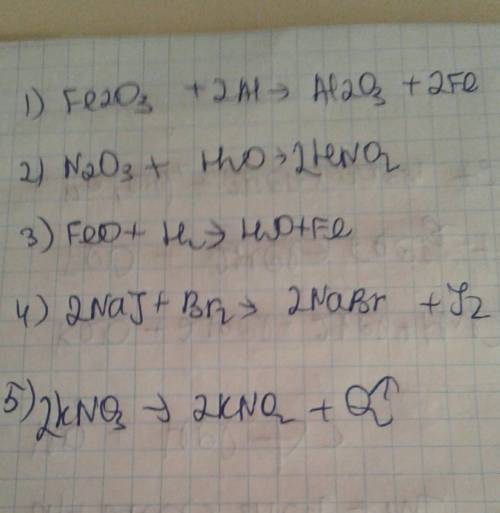 1) Fe2O3 + 2Al → Al2O3 + 2Fe
2) N2O3 + H2O → 2HNO2
3) FeO + H2 → H2O + Fe
4) 2NaJ + Br2 → 2NaBr + J2
5) 2KNO3 → 2KNO2 + O2↑